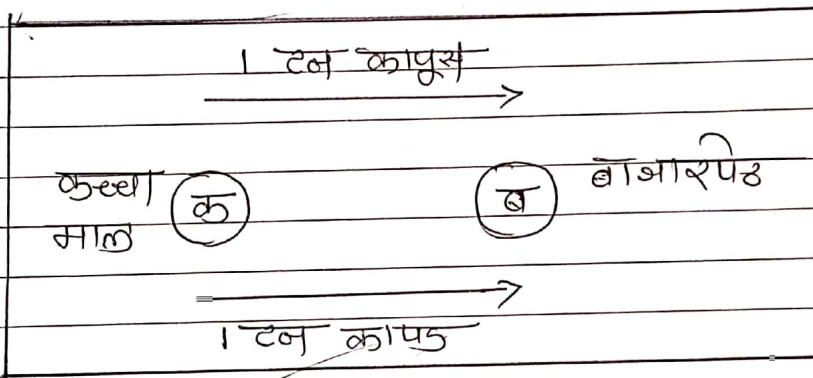 1 टन कापूस
कच्चा
माल
क
ब
बाजारपेठ
1 टन कापड